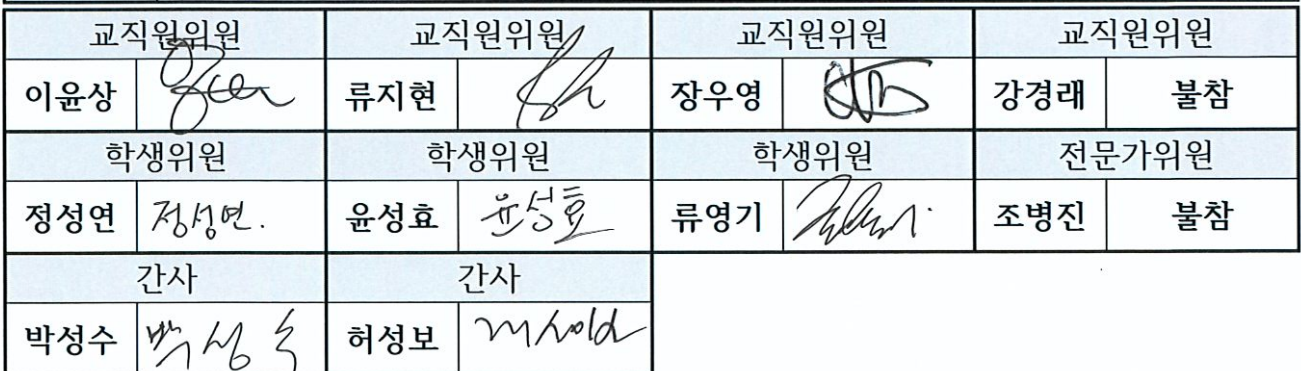 교직원위원 교직원위원 교직원위원 교직원위원
이윤상 류지현 장우영 강경래 불참
학생위원 학생위원 학생위원 전문가위원
정성연 정성연. 윤성효 윤성효 류영기 조병진 불참
간사 간사
박성수 박성수 허성보